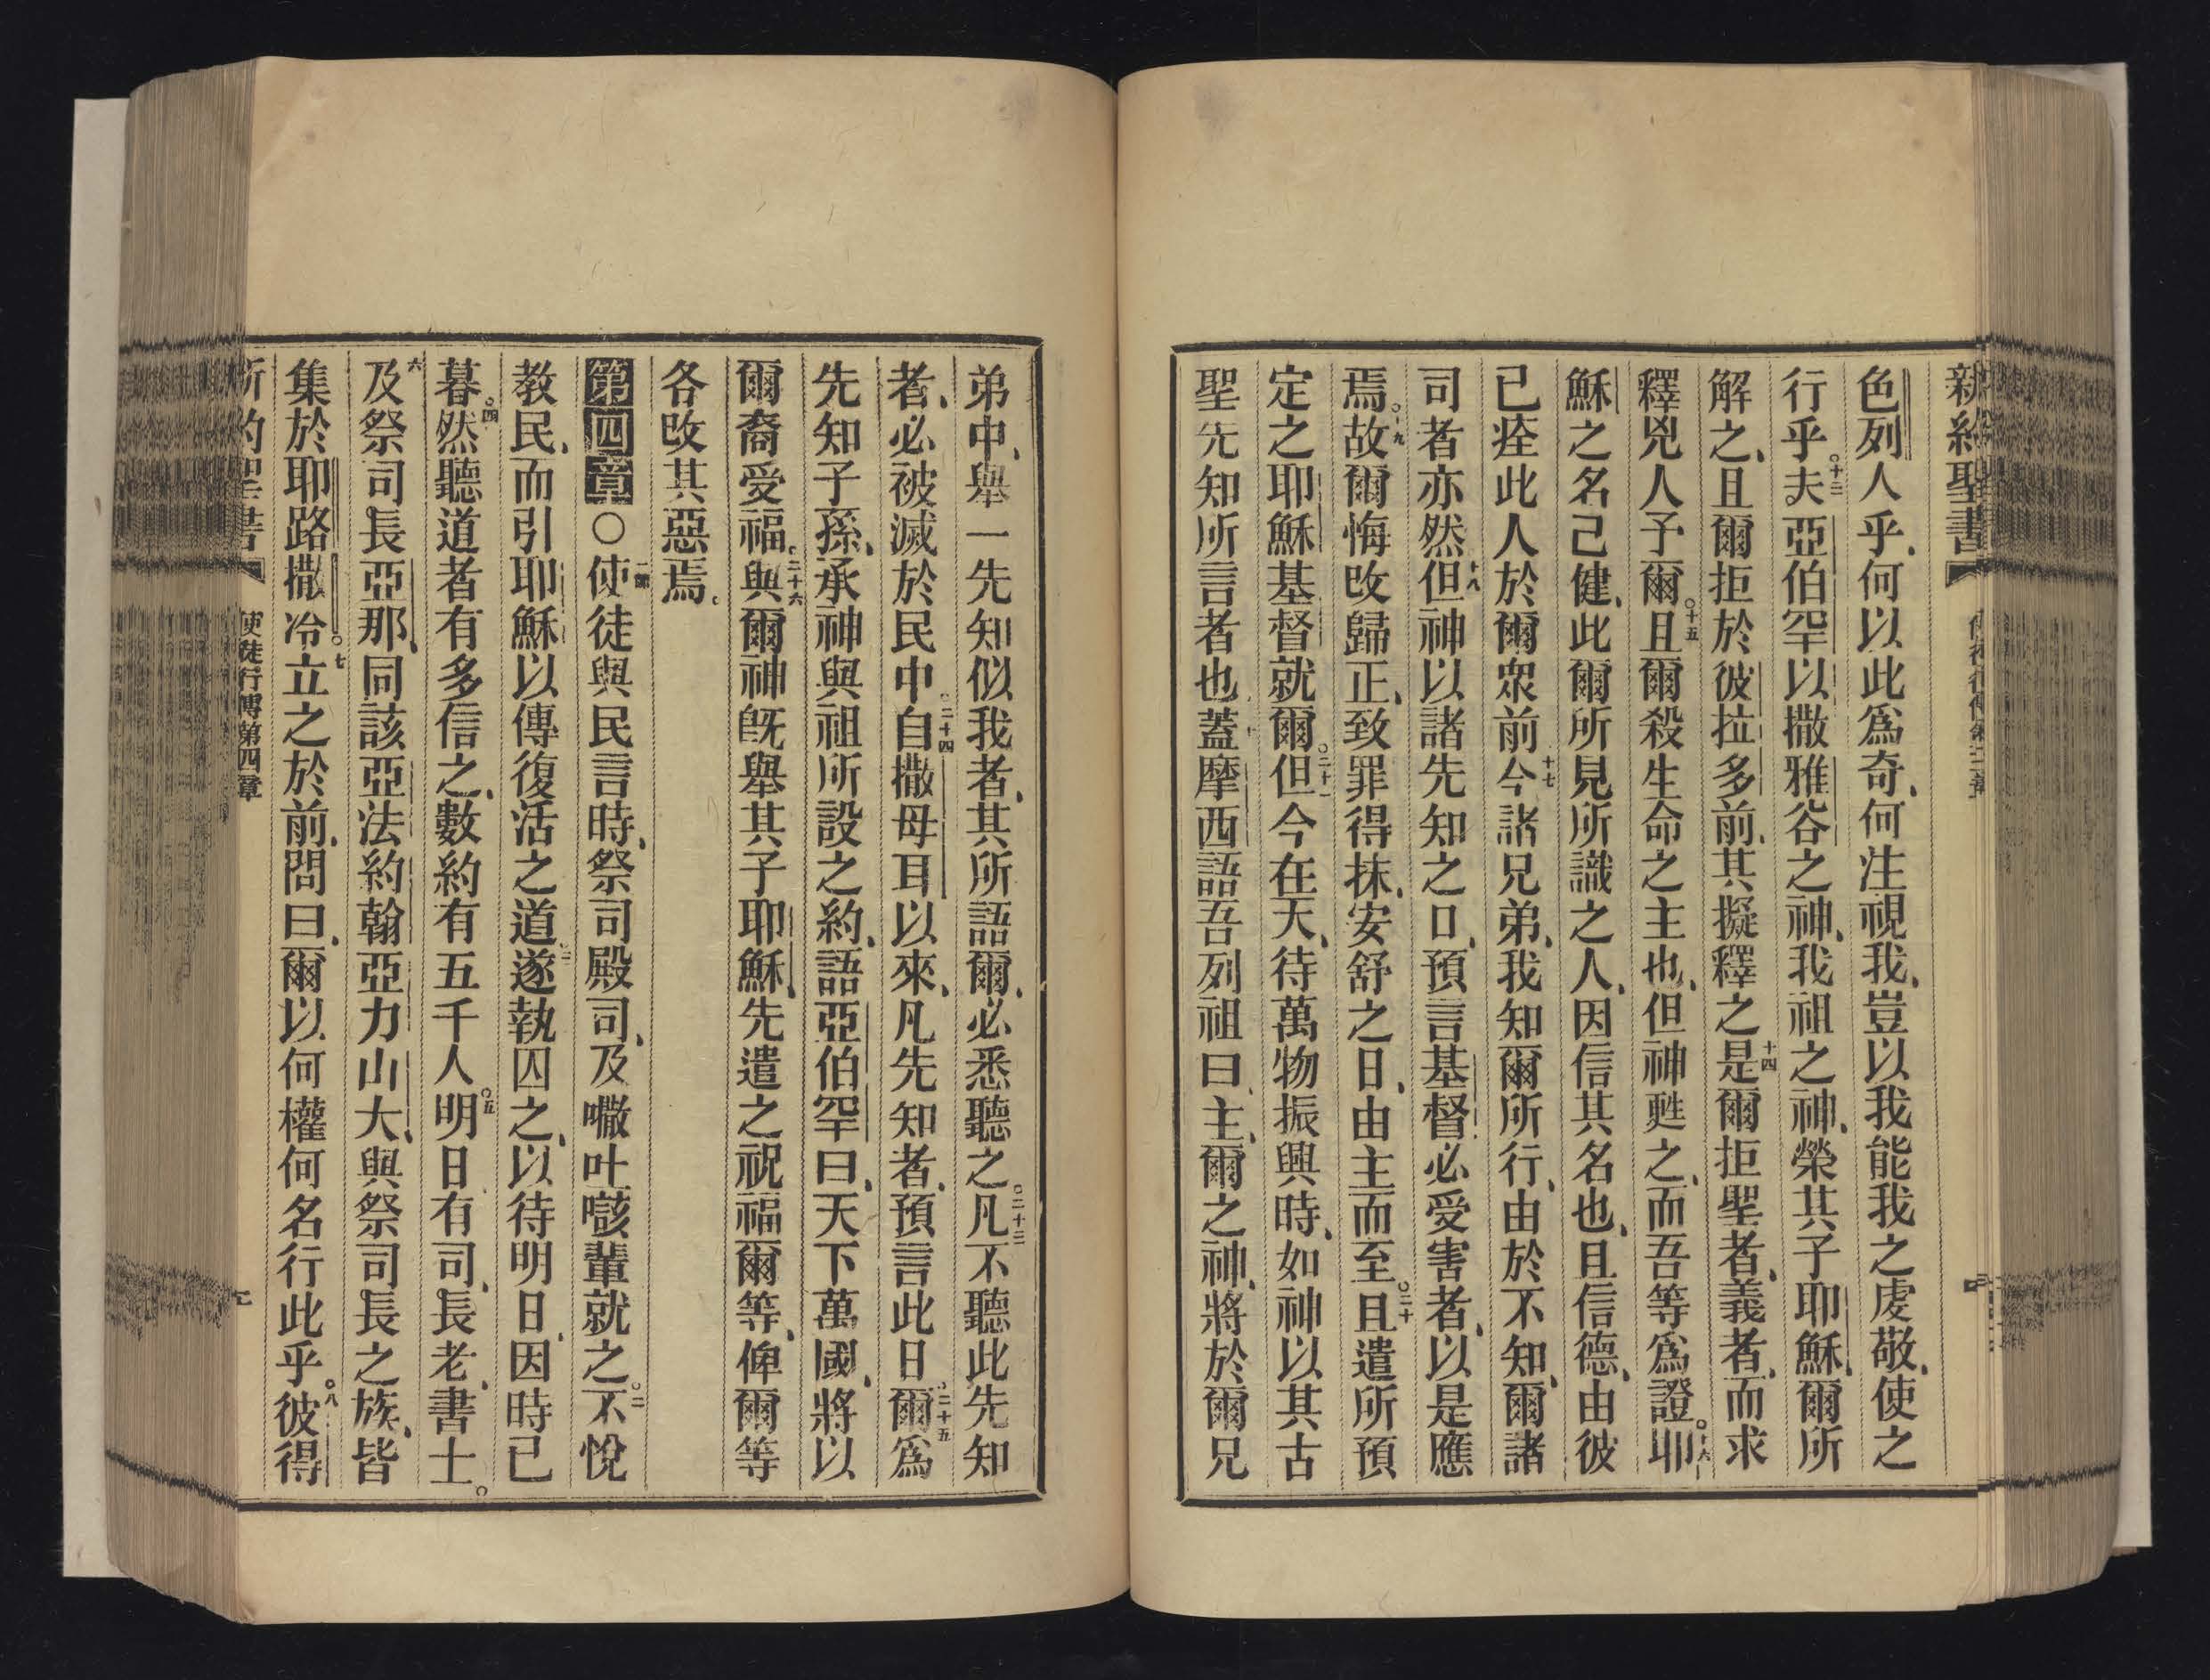 新約聖書
色列人乎、何以此爲奇、何注視我、豈以我能我之虔敬、使之
行乎。十三夫亞伯罕以撒雅谷之神、我祖之神、榮其子耶穌、爾所
解之、且爾拒於彼拉多前、其擬釋之、十四是爾拒聖者、義者、而求
釋兇人予爾。十五且爾殺生命之主也、但神甦之、而吾等爲證。十六耶
穌之名己健、此爾所見所識之人、因信其名也、且信德、由彼
已痊此人於爾眾前、十七今諸兄弟、我知爾所行、由於不知、爾諸
司者亦然、十八但神以諸先知之口、預言基督必受害者、以是應
焉。十九故爾悔改歸正、致罪得抹、安舒之日、由主而至。二十且遣所預
定之耶穌基督就爾。二十一但今在天、待萬物振興時、如神以其古
聖先知所言者也、蓋摩西語吾列祖曰、主、爾之神、將於爾兄
弟中、舉一先知似我者、其所語爾、必悉聽之。二十三凡不聽此先知
者、必被滅於民中、二十四自撒母耳以來、凡先知者、預言此日、二十五爾爲
先知子孫、承神與祖所設之約、語亞伯罕曰、天下萬國、將以
爾裔受福。二十六與爾神旣舉其子耶穌、先遣之祝福爾等、俾爾等
各改其惡焉。
第四章○一節使徒與民言時、祭司殿司、及㘔吐㗒輩就之。二不悅
教民、而引耶穌以傳復活之道、三遂執囚之、以待明日、因時已
暮。四然聽道者有多信之、數約有五千人。五明日有司、長老、書士。
六及祭司長亞那、同該亞法約翰亞力山大、與祭司長之族、皆
集於耶路撒冷。七立之於前、問曰、爾以何權何名行此乎。八彼得
使徒行傳第四章